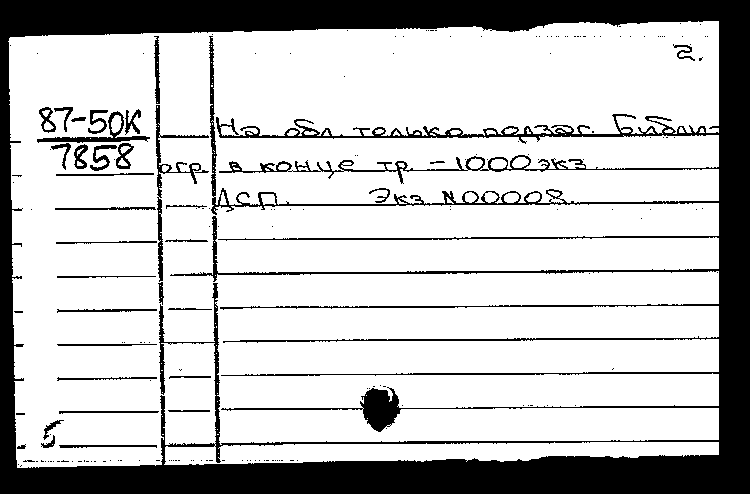 2.
87-50К
7858
На обл. только подзаг. Библи-
огр. в конце тр. - 1000 экз.
ДСП. Экз N00008.
5